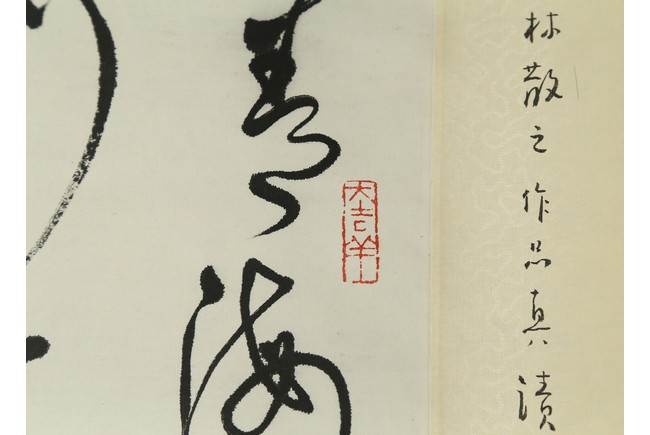 林散之作品真蹟
大吉羊
青海